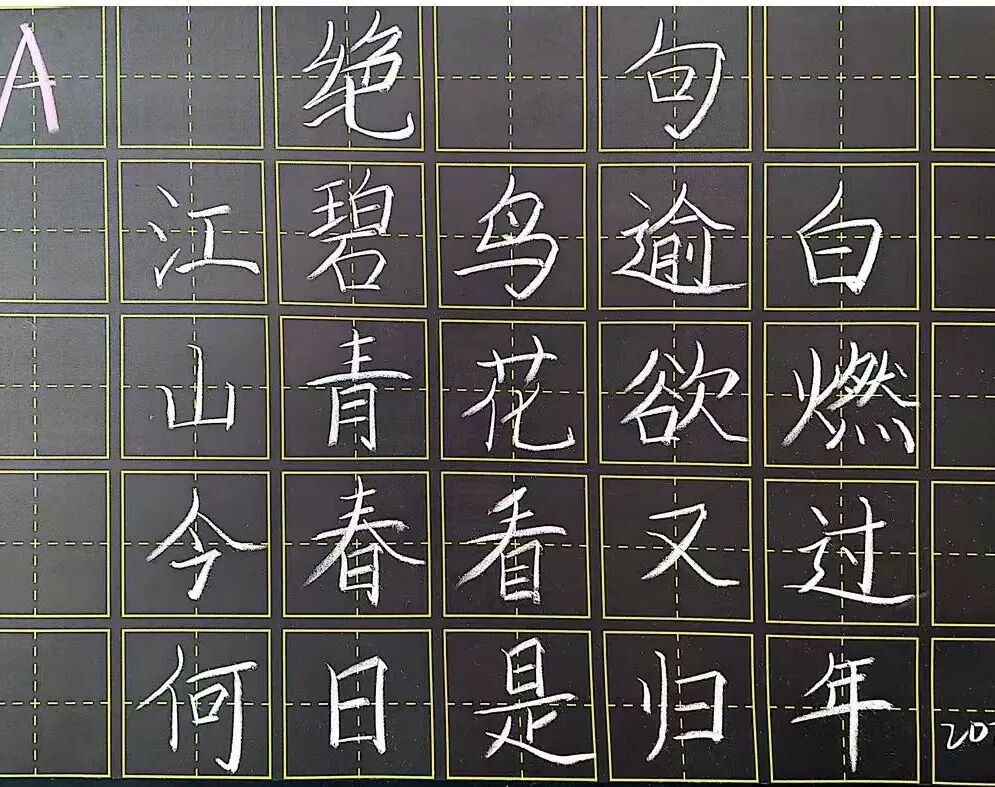 A 绝 句
江 碧 鸟 逾 白
山 青 花 欲 燃
今 春 看 又 过
何 日 是 归 年